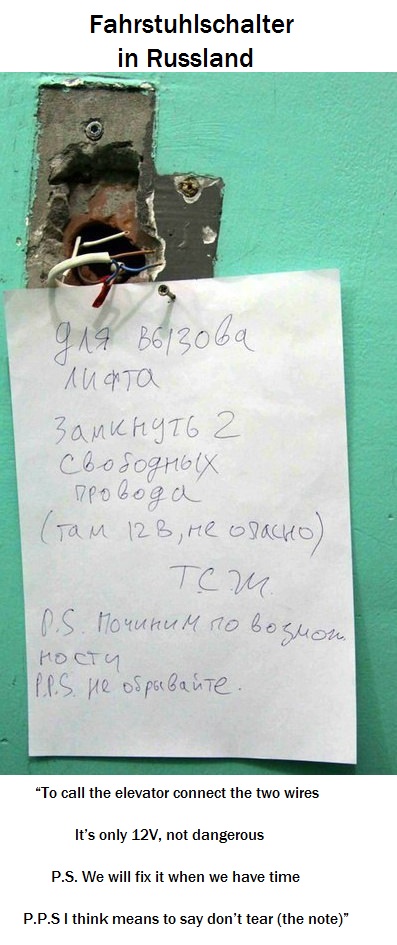 Fahrstuhlschalter
in Russland
Для вызова
лифта
Замкнуть 2
свободных
провода
(там 12В, не опасно)
Т.С.Ж.
P.S. Починим по возмож
ности
P.P.S. не обрывайте.
“To call the elevator connect the two wires
It’s only 12V, not dangerous
P.S. We will fix it when we have time
P.P.S I think means to say don’t tear (the note)”